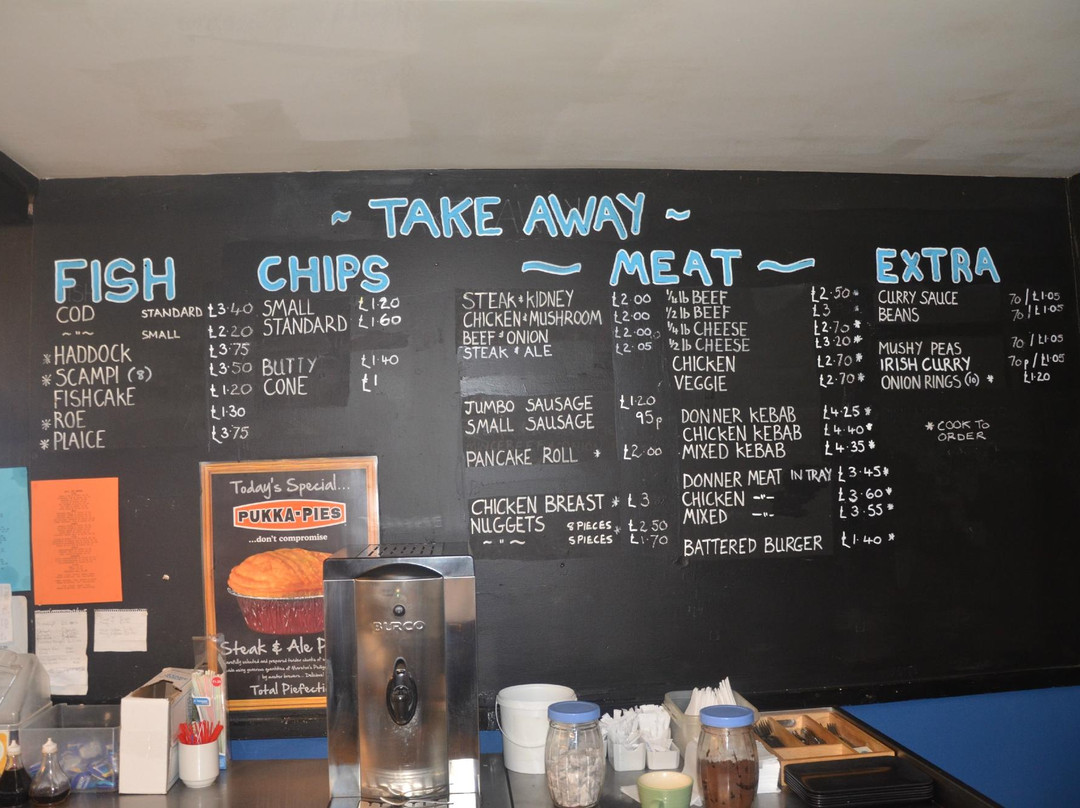 ~ TAKE AWAY ~
FISH
COD STANDARD £3·40
~"~ SMALL £2·20
* HADDOCK £3·75
* SCAMPI (8) £3·50
FISHCAKE £1·20
* ROE £1·30
* PLAICE £3·75
CHIPS
SMALL £1·20
STANDARD £1·60
BUTTY £1·40
CONE £1
~ MEAT ~
STEAK & KIDNEY £2·00
CHICKEN & MUSHROOM £2·00
BEEF & ONION £2·00
STEAK & ALE £2·05
JUMBO SAUSAGE £1·20
SMALL SAUSAGE 95p
PANCAKE ROLL * £2·00
CHICKEN BREAST * £3
NUGGETS 8 PIECES * £2·50
~"~ 5 PIECES * £1·70
¼ lb BEEF £2·50 *
½ lb BEEF £3 *
¼ lb CHEESE £2·70 *
½ lb CHEESE £3·20 *
CHICKEN £2·70 *
VEGGIE £2·70 *
DONNER KEBAB £4·25 *
CHICKEN KEBAB £4·40 *
MIXED KEBAB £4·35 *
DONNER MEAT IN TRAY £3·45 *
CHICKEN -"- £3·60 *
MIXED -"- £3·55 *
BATTERED BURGER £1·40 *
EXTRA
CURRY SAUCE 70 / £1·05
BEANS 70 / £1·05
MUSHY PEAS 70 / £1·05
IRISH CURRY 70p / £1·05
ONION RINGS (10) * £1·20
* COOK TO
ORDER
Today's Special...
PUKKA-PIES
...don't compromise
Steak & Ale P
Total Piefecti
BURCO